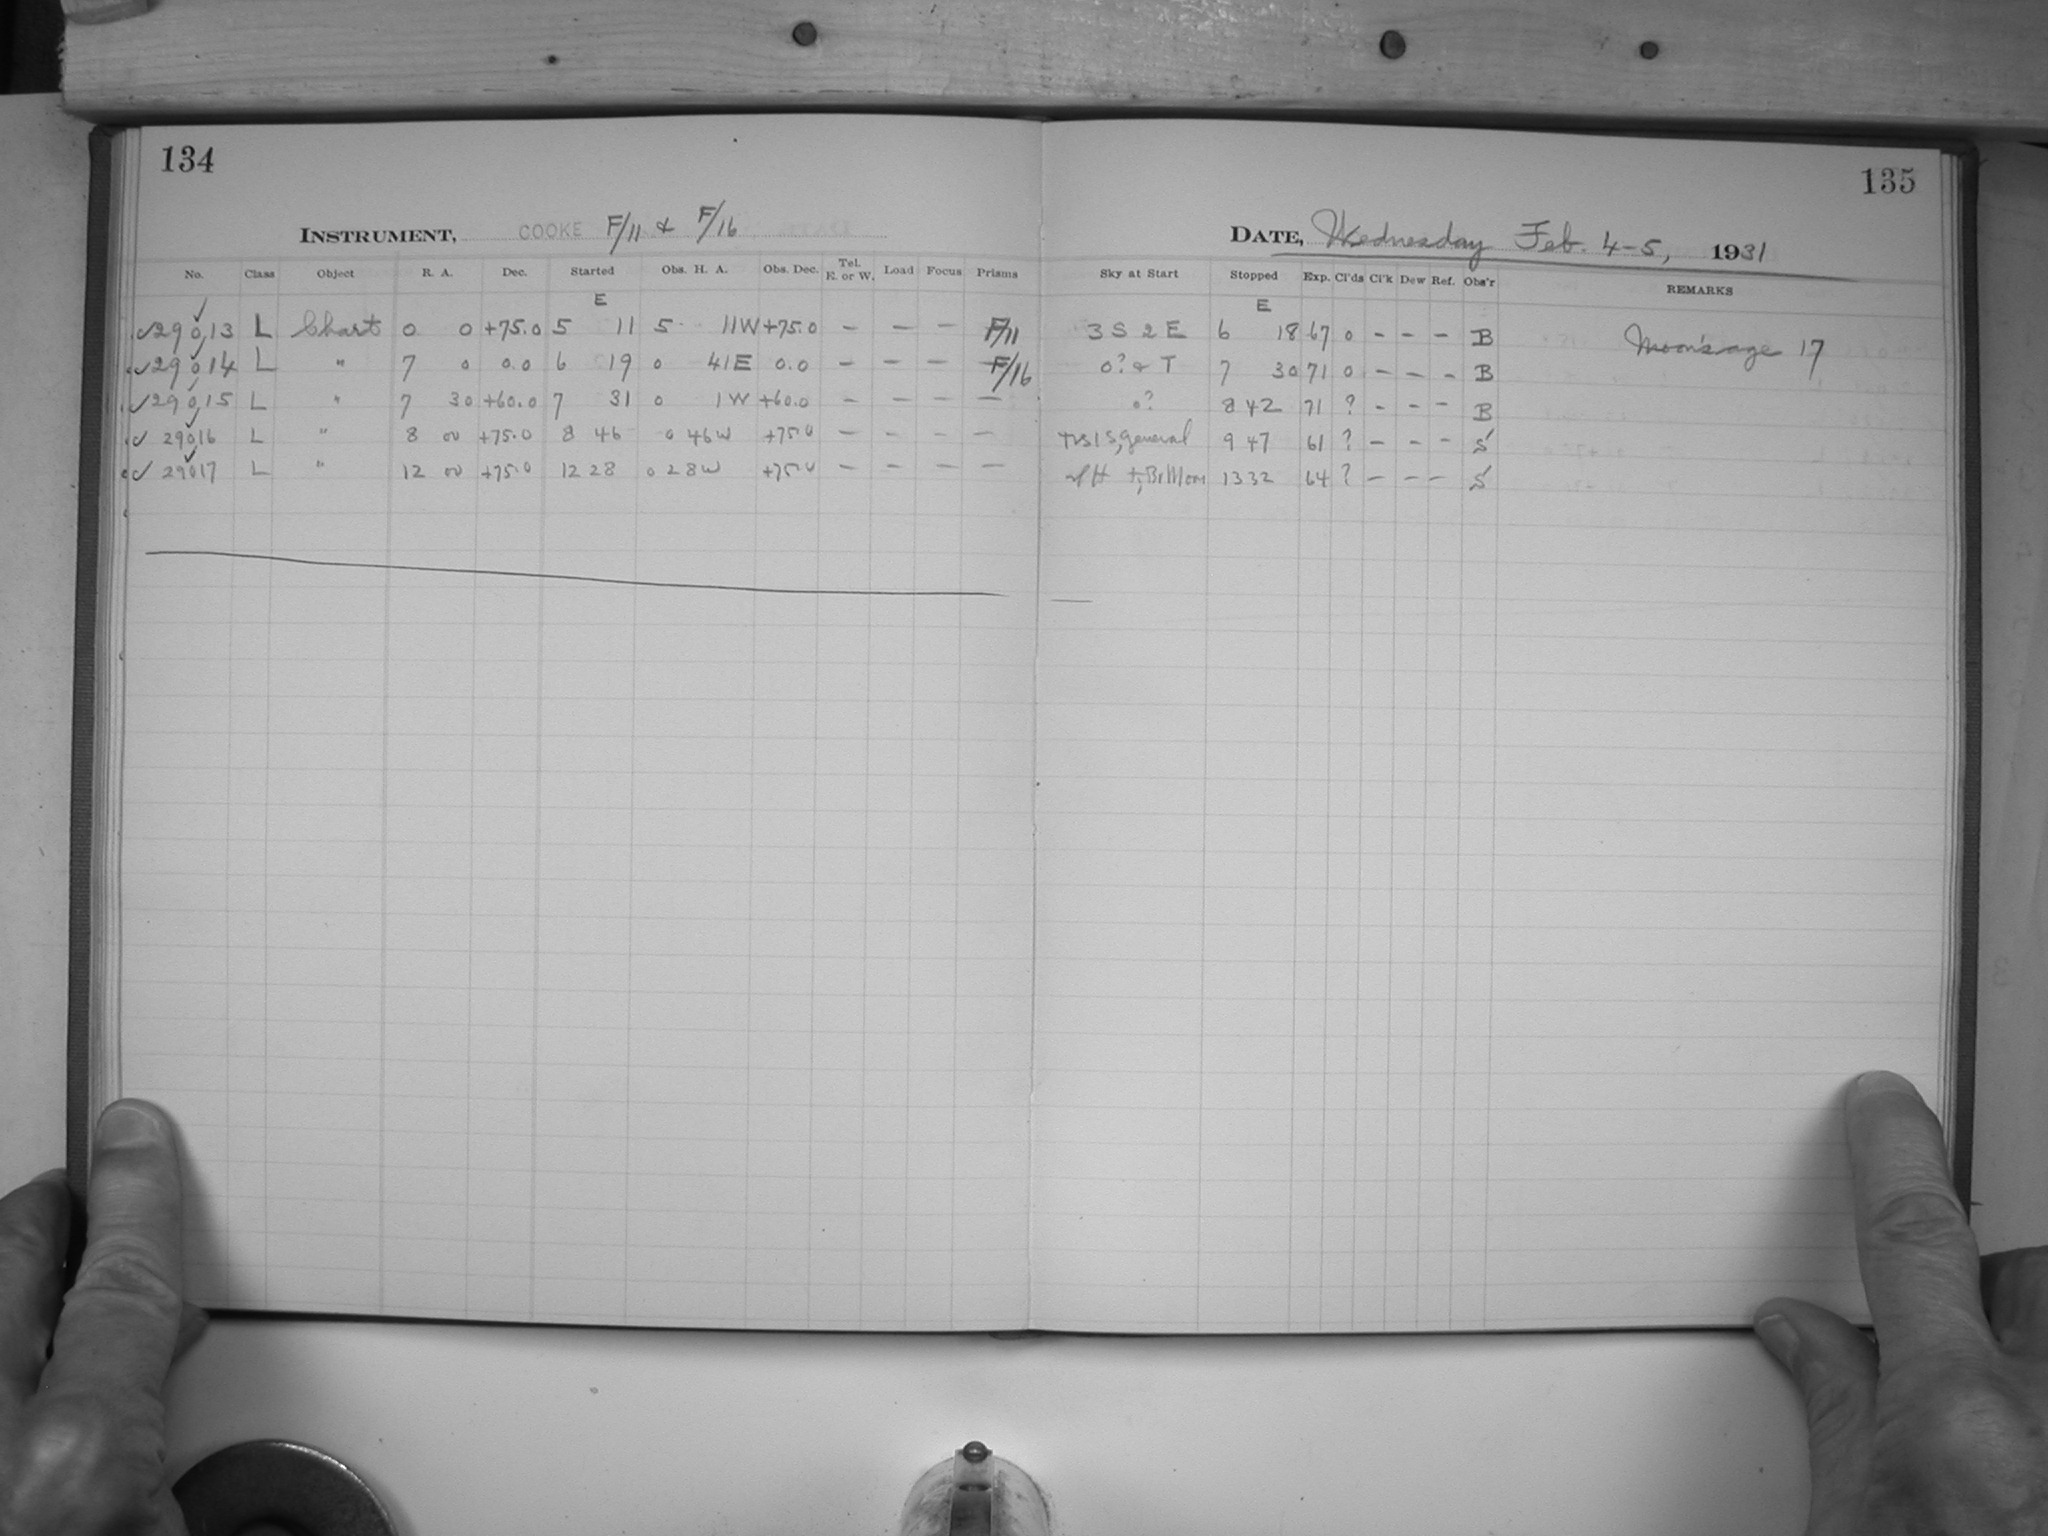 134
135
INSTRUMENT, COOKE F/11 & F/16
DATE, Wednesday Feb. 4-5, 1931
No. Class Object R. A. Dec. Started Obs. H. A. Obs. Dec. Tel. E. or W. Load Focus Prisms Sky at Start Stopped Exp. Cl'ds Cl'k Dew Ref. Obs'r REMARKS
E E
✓29013 L Chart 0 0 +75.0 5 11 5 11W +75.0 — — — F/11 3 S 2 E 6 18 67 0 — — — B Moon's age 17
✓29014 L " 7 0 0.0 6 19 0 41E 0.0 — — — F/16 0? & T 7 30 71 0 — — — B
✓29015 L " 7 30 +60.0 7 31 0 1W +60.0 — — — — 0? 8 42 71 ? — — — B
✓29016 L " 8 00 +75.0 8 46 0 46W +75.0 — — — — general 9 47 61 ? — — — S
✓29017 L " 12 00 +75.0 12 28 0 28W +75.0 — — — — Br Moon 13 32 64 ? — — — S